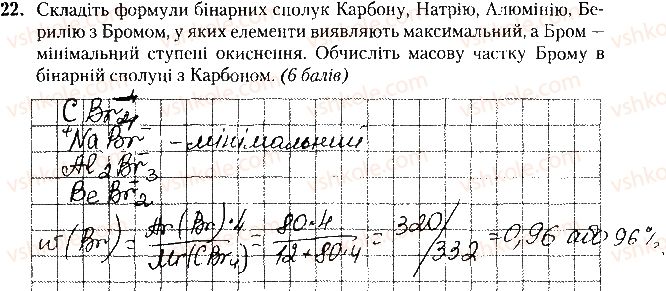 22. Складіть формули бінарних сполук Карбону, Натрію, Алюмінію, Бе-
рилію з Бромом, у яких елементи виявляють максимальний, а Бром –
мінімальний ступені окиснення. Обчисліть масову частку Брому в
бінарній сполуці з Карбоном. (6 балів)
C Br4
+NaBr- - мінімальний
Al2Br3
BeBr2
w(Br) = Ar(Br)·4 / Mr(CBr4) = 80·4 / 12+80·4 = 320/332 = 0,96 або 96%.